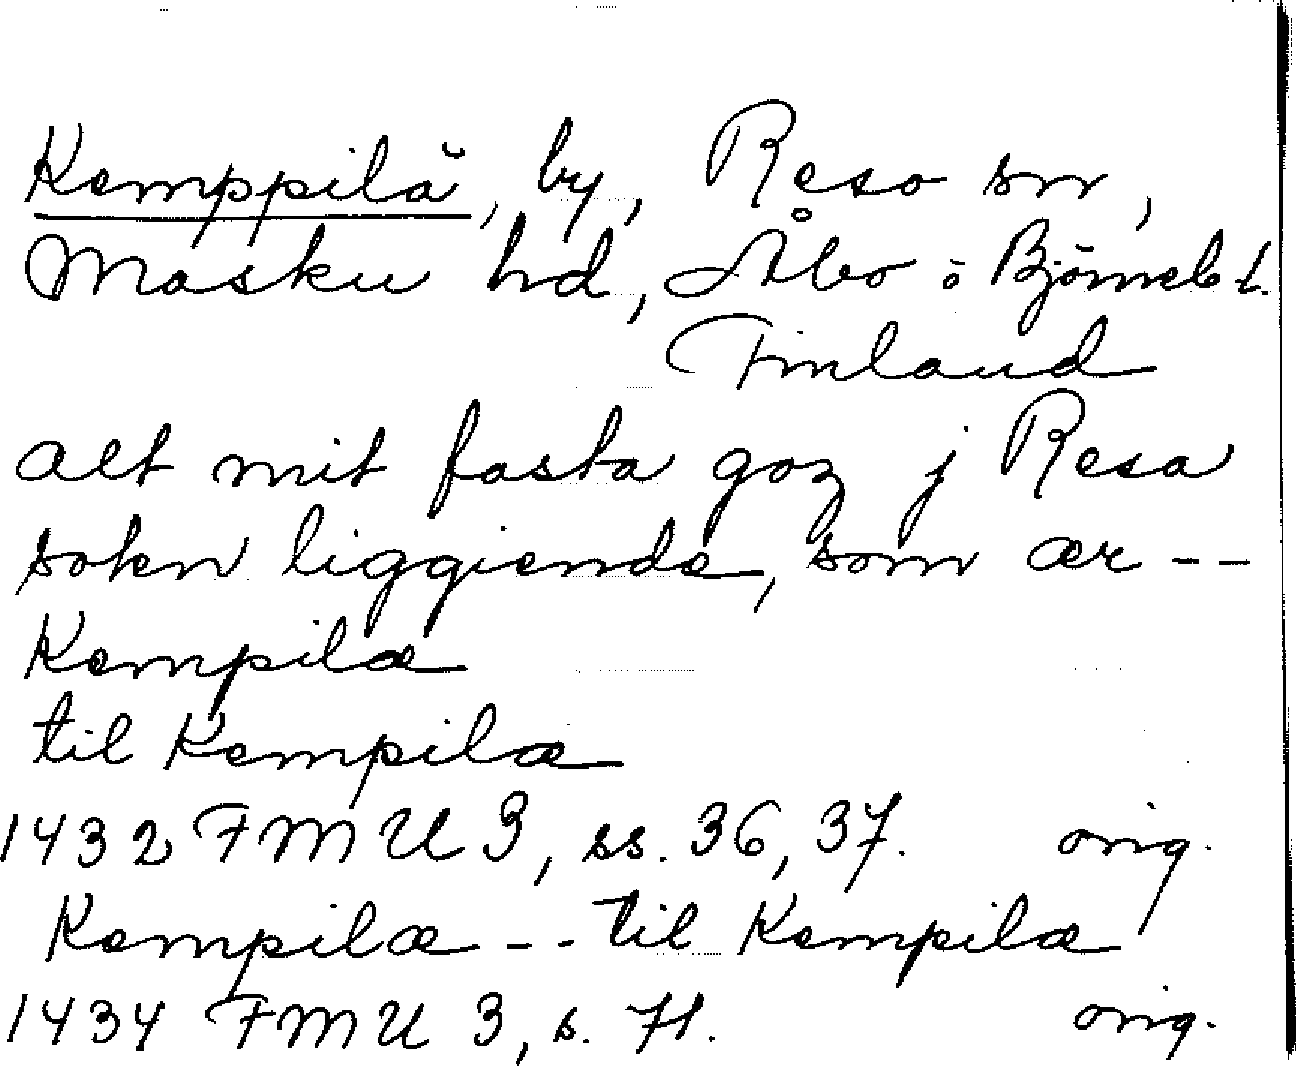 Kemppilä, by, Reso sn,
Masku hd, Åbo o Björneb l.
Finland
alt mit fasta goz j Resa
sokn liggiende, som ær --
Kempilæ
til Kempilæ
1432 FMU 3, ss. 36, 37. orig.
Kempilæ -- til Kempilæ
1434 FMU 3, s. 71. orig.